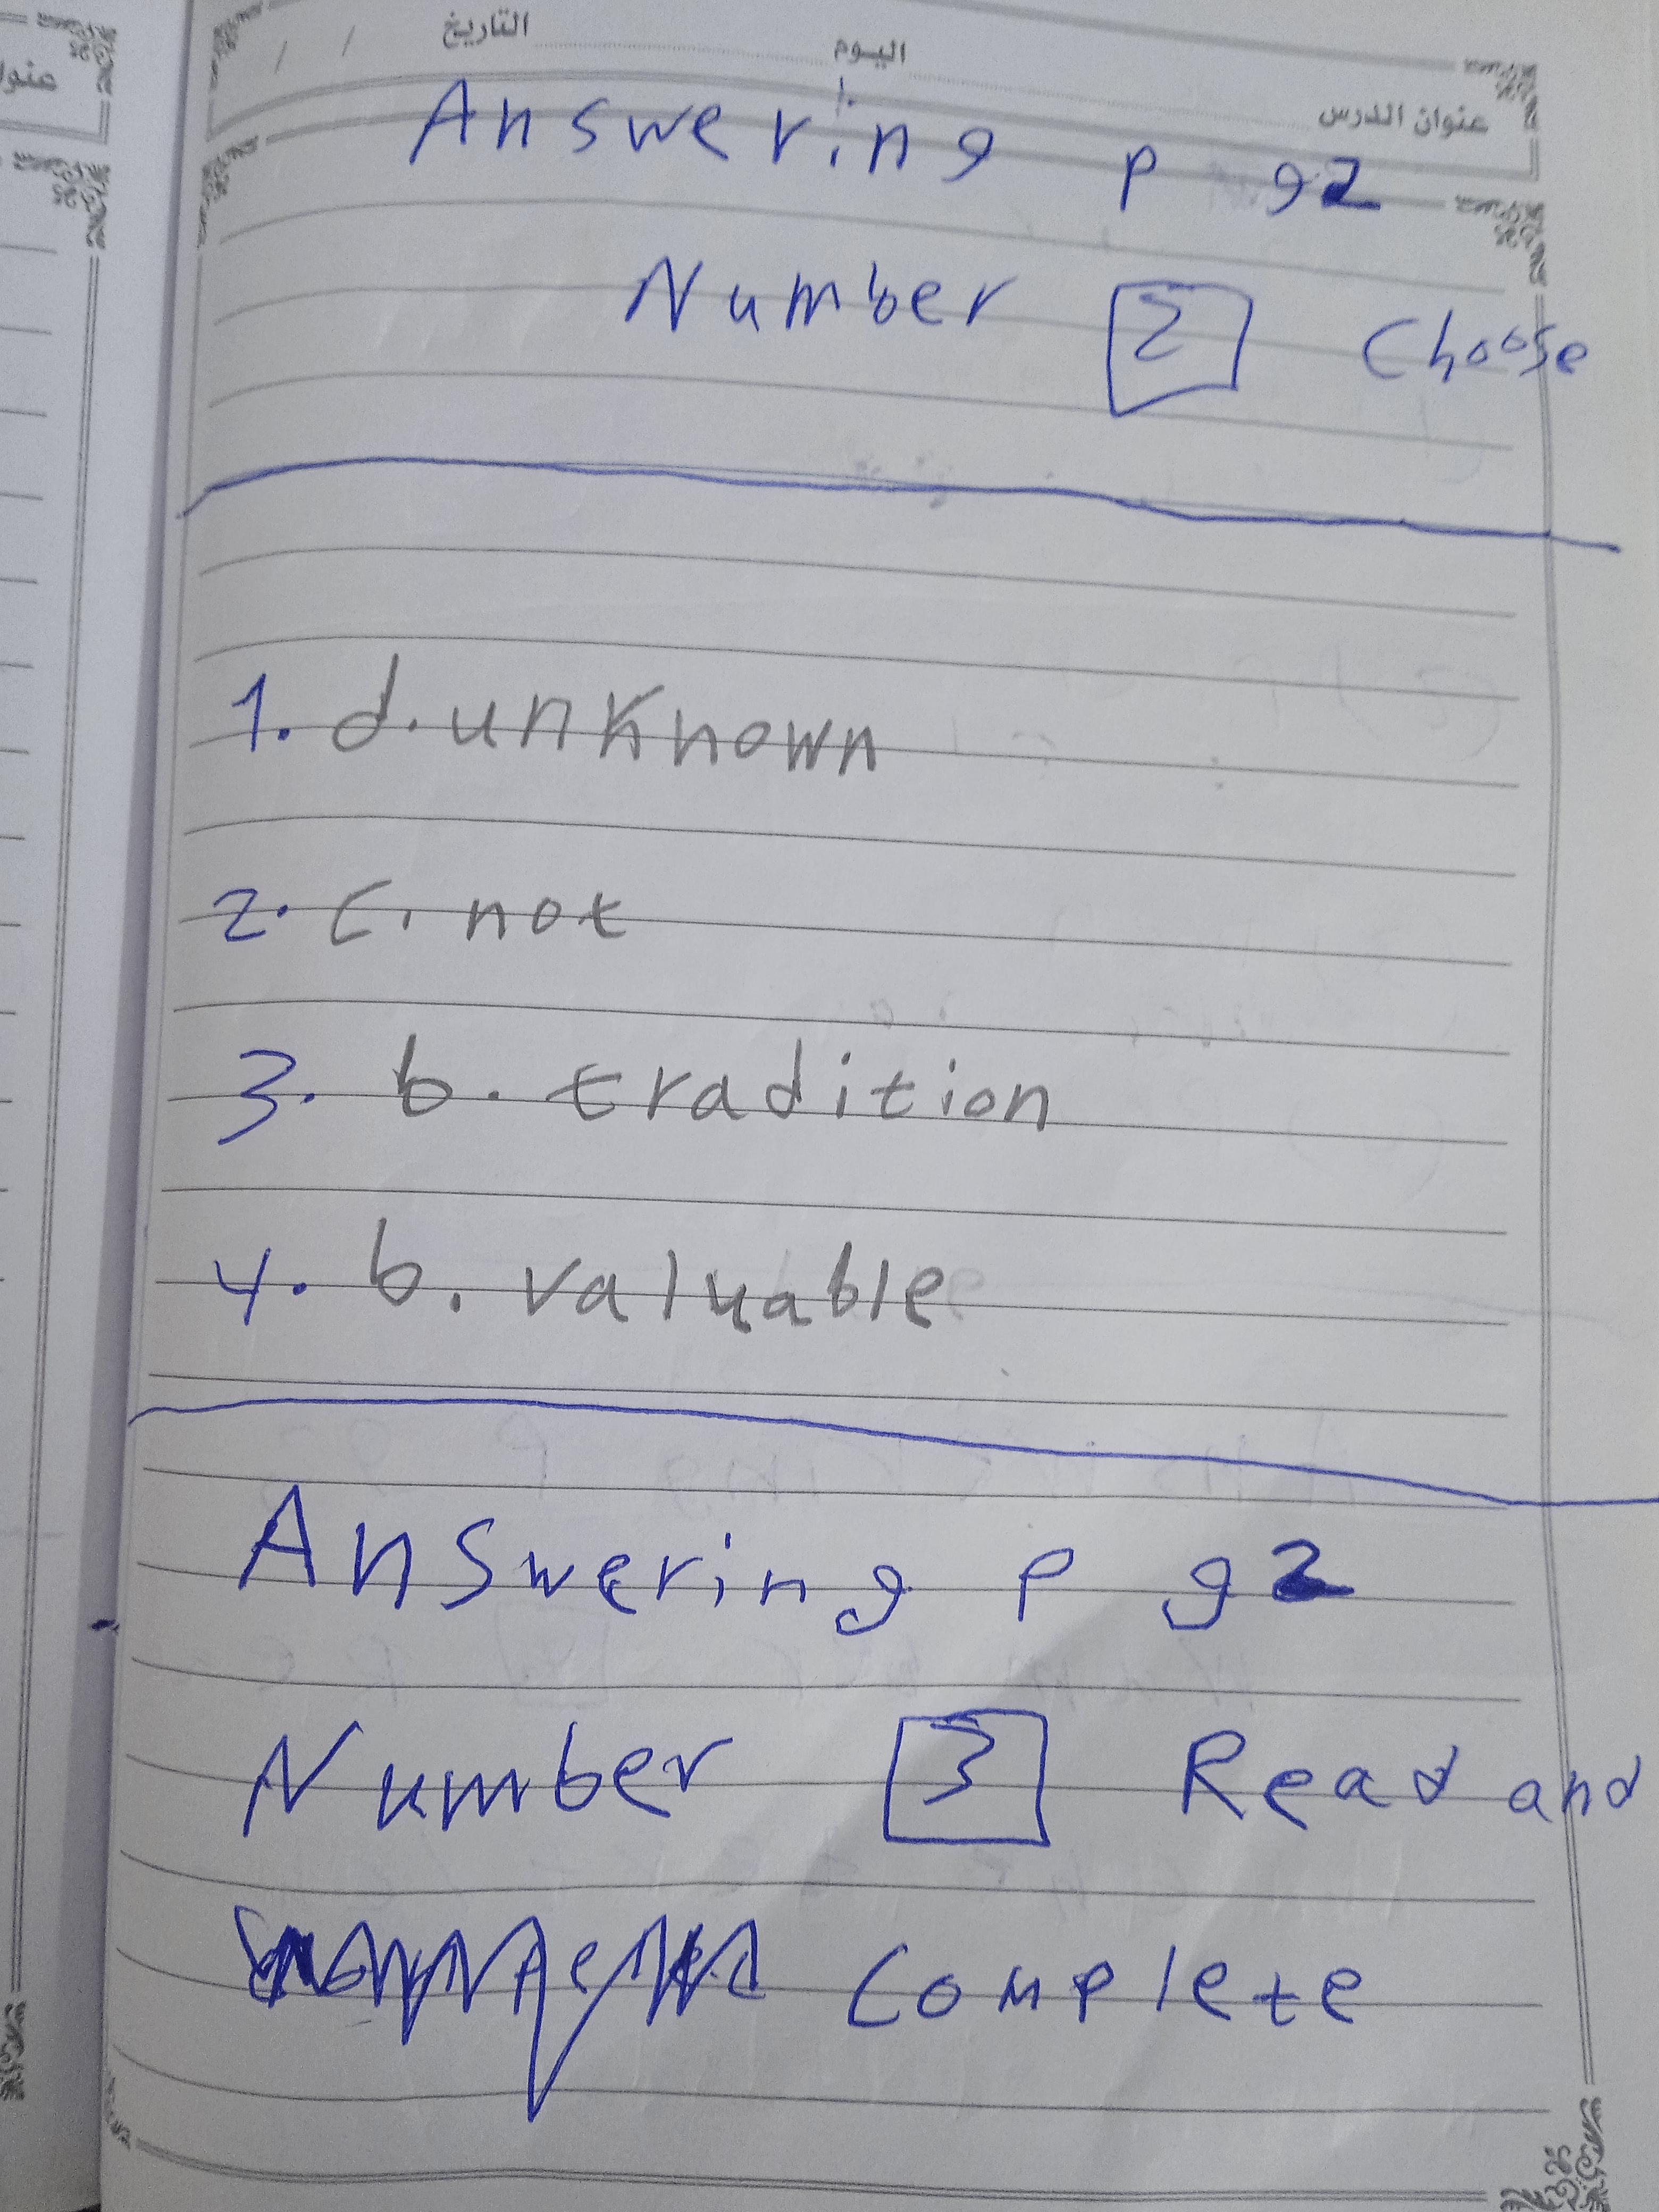 التاريخ اليوم
عنوان الدرس
Answering p 92
Number 2 Choose
1. d. unknown
2. c. not
3. b. tradition
4. b. valuable
Answering p 92
Number 3 Read and
Complete